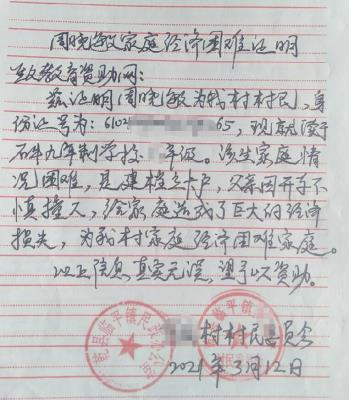 周晓敏家庭经济困难证明
致教育资助网：
兹证明周晓敏为我村村民，身
份证号为：6102 65，现就读于
石牛九年制学校 年级。该生家庭情
况困难，是建档立卡户，父亲因开车不
慎撞人，给家庭造成了巨大的经济
损失，为我村家庭经济困难家庭。
以上信息真实无误，望予以资助。
村村民委员会
2021年3月12日
乾县临平镇民政办公室
临平镇